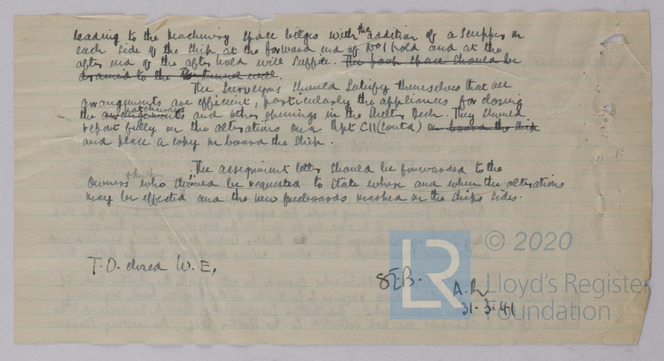 leading to the machinery space bilges with the addition of a scupper on
each side of the ship at the forward end of No 1 hold and at the
after end of the after hold will suffice. The poop space should be
drained to the tunnel well.
The Surveyors should satisfy themselves that all
arrangements are efficient, particularly the appliances for closing
the arrangements hatchways and other openings in the shelter deck. They should
report fully on the alterations on a Rpt C11 (contd) on board the ship
and place a copy on board the ship.
The assignment letter should be forwarded to the
Owners who should be requested to state where and when the alterations
may be effected and the new freeboards marked on the ship's sides.
T.O. closed W.E.
SEB.
31-3-41
LR
© 2020
Lloyd's Register
Foundation